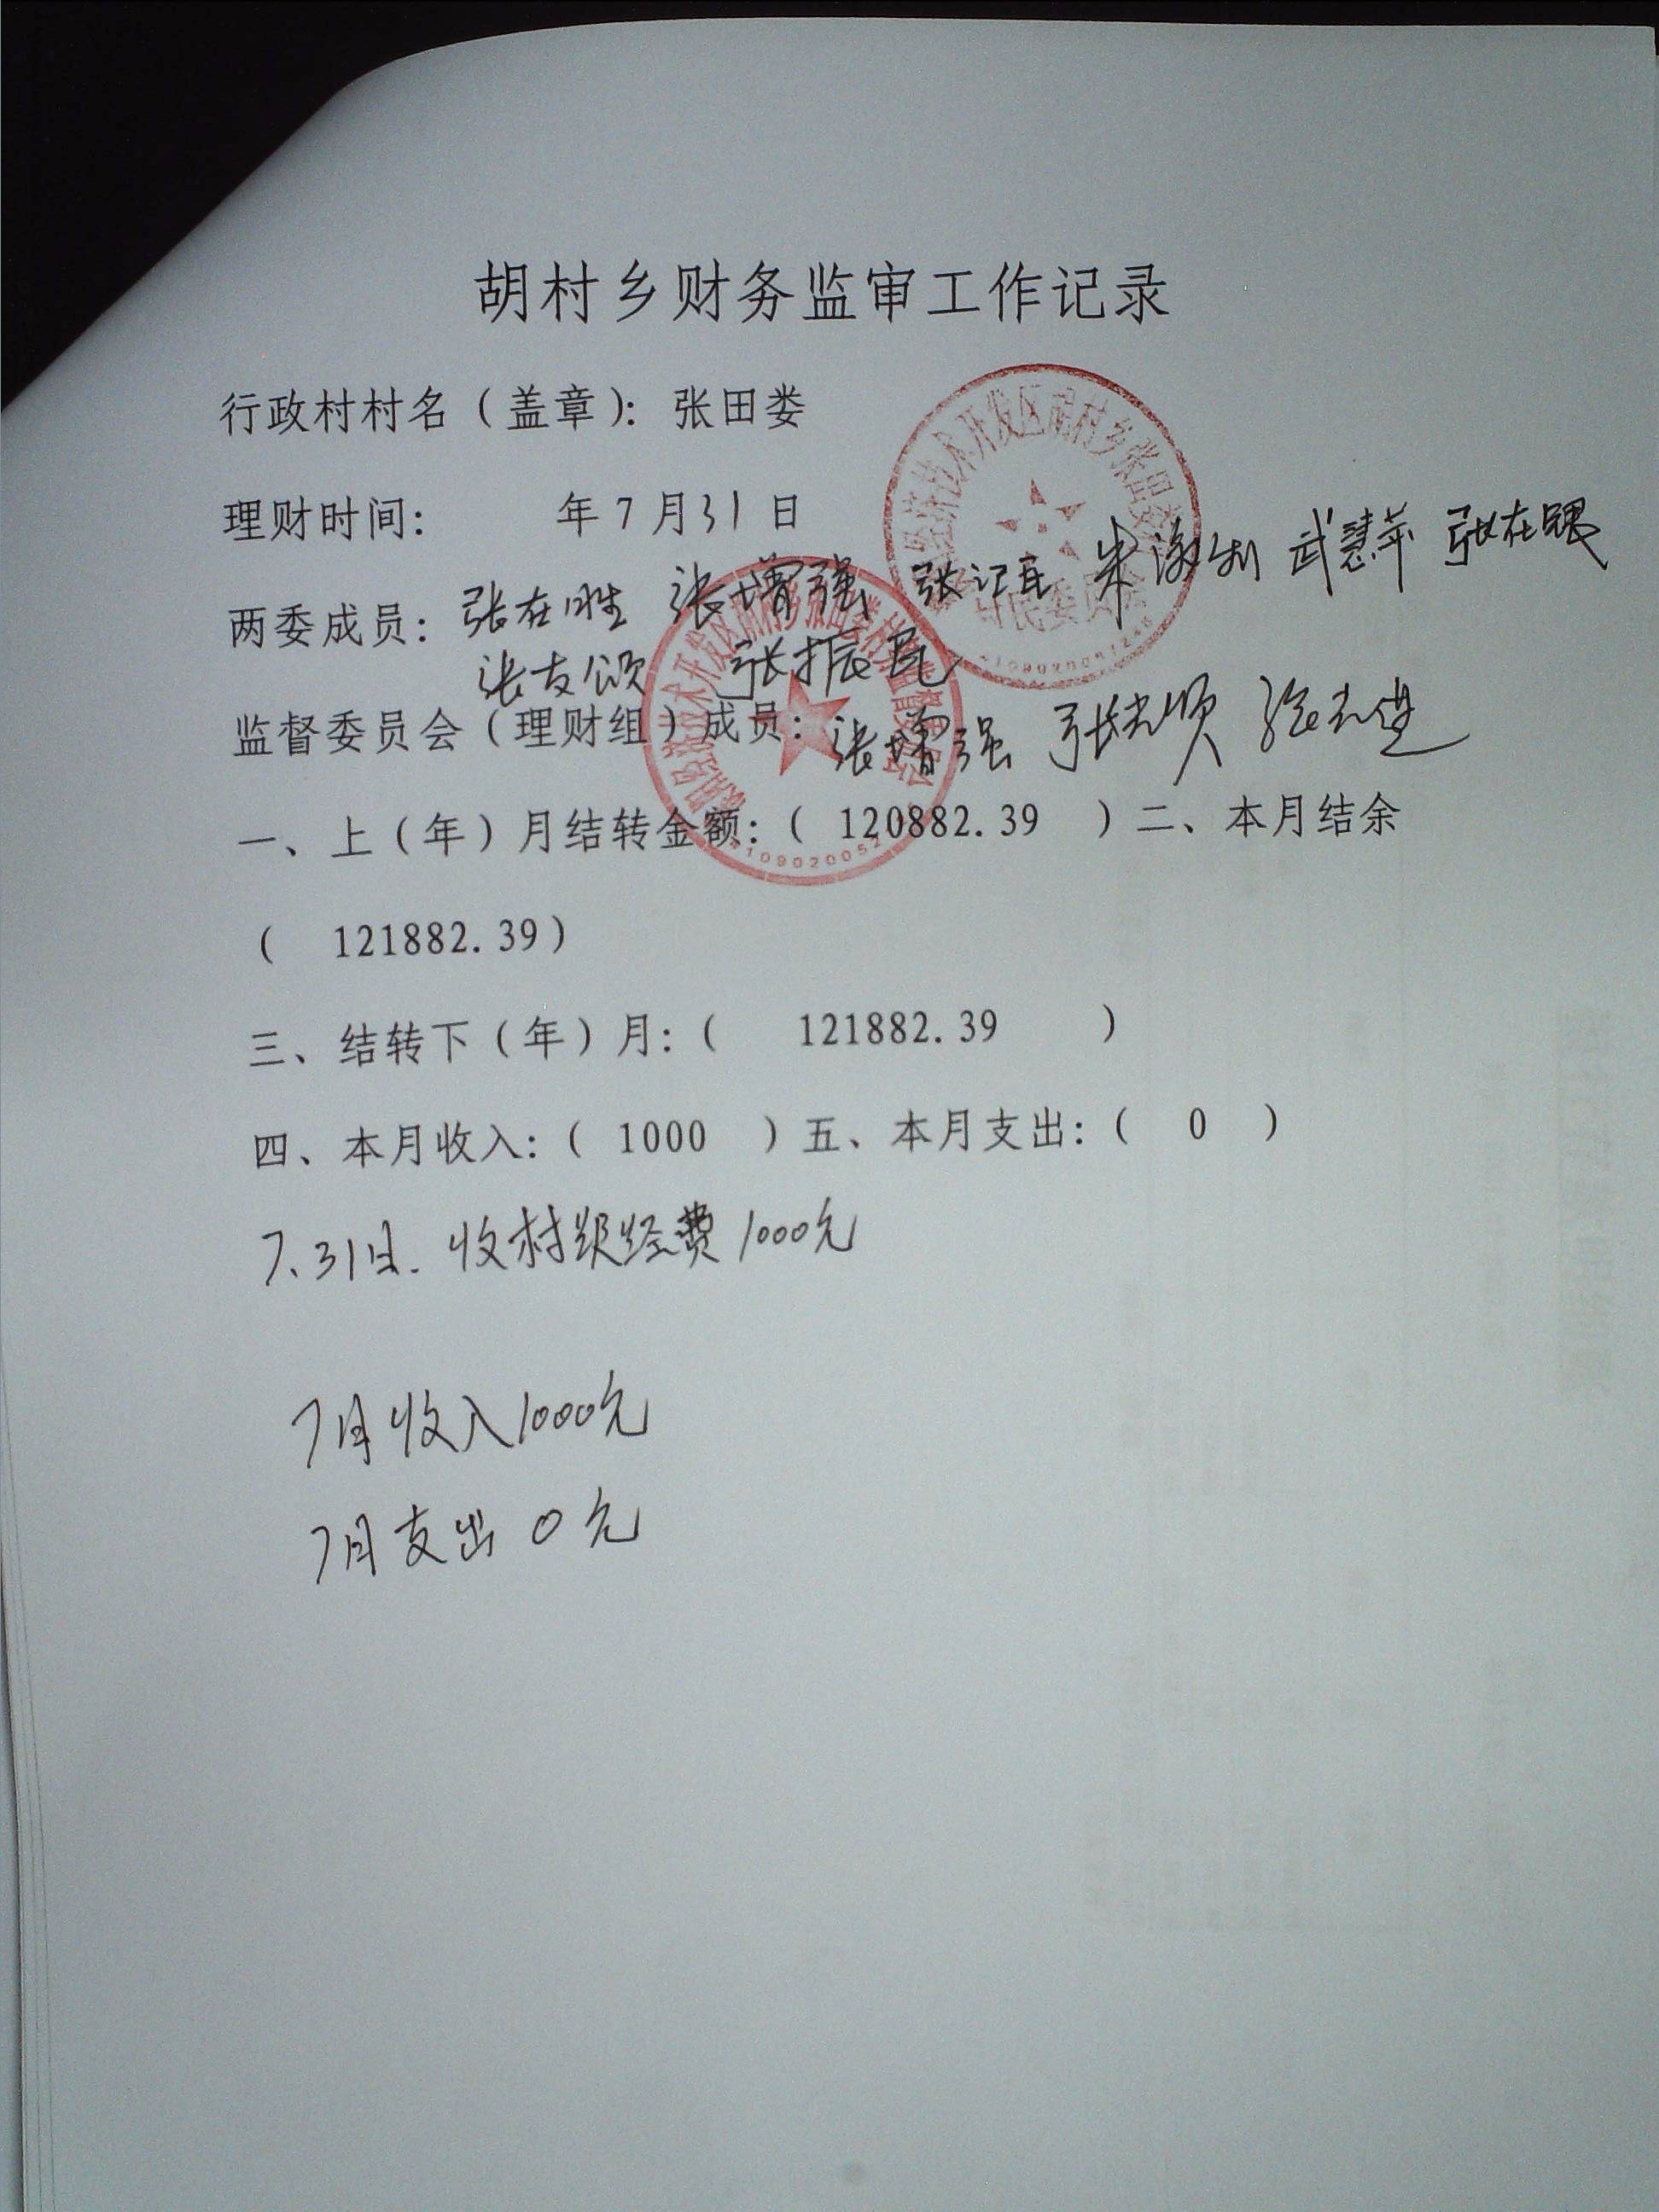 胡村乡财务监审工作记录
行政村村名（盖章）：张田娄
理财时间： 年7月31日
两委成员：张在胜 张增强 张记民 武慧苹 张在
张友颂 张振民
监督委员会（理财组）成员：张增强 张 顺
一、上（年）月结转金额：（ 120882.39 ）二、本月结余
（ 121882.39）
三、结转下（年）月：（ 121882.39 ）
四、本月收入：（ 1000 ）五、本月支出：（ 0 ）
7.31日.收村级经费1000元
7月收入1000元
7月支出0元
经济技术开发区胡村乡张田娄
村民委员会